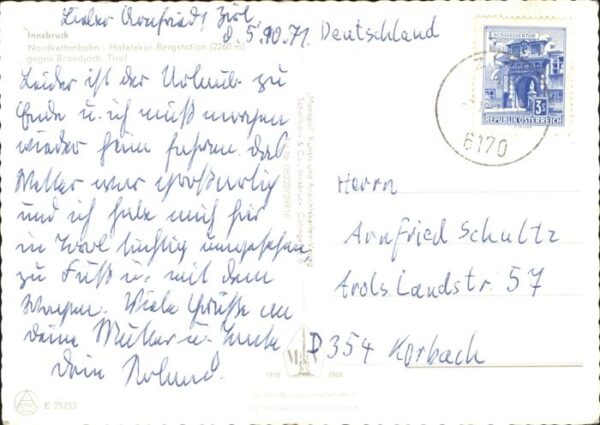 Lieber Arnfried! Zirl
d. 5.10.71.
Deutschland
Innsbruck
Nordkettenbahn - Hafelekar-Bergstation (2260 m)
gegen Brandjoch, Tirol
Leider ist der Urlaub zu
Ende u. ich muß morgen
wieder heim fahren. Das
Wetter war großartig
und ich habe mich hier
in Zirl tüchtig umgesehen
zu Fuß u. mit dem
Wagen. Viele Grüße an
deine Mutter u.
Dein Roland.
E 25753
3 S
REPUBLIK ÖSTERREICH
6170
Herrn
Arnfried Schultz
Arols. Landstr. 57
D 354 Korbach
1918 1968